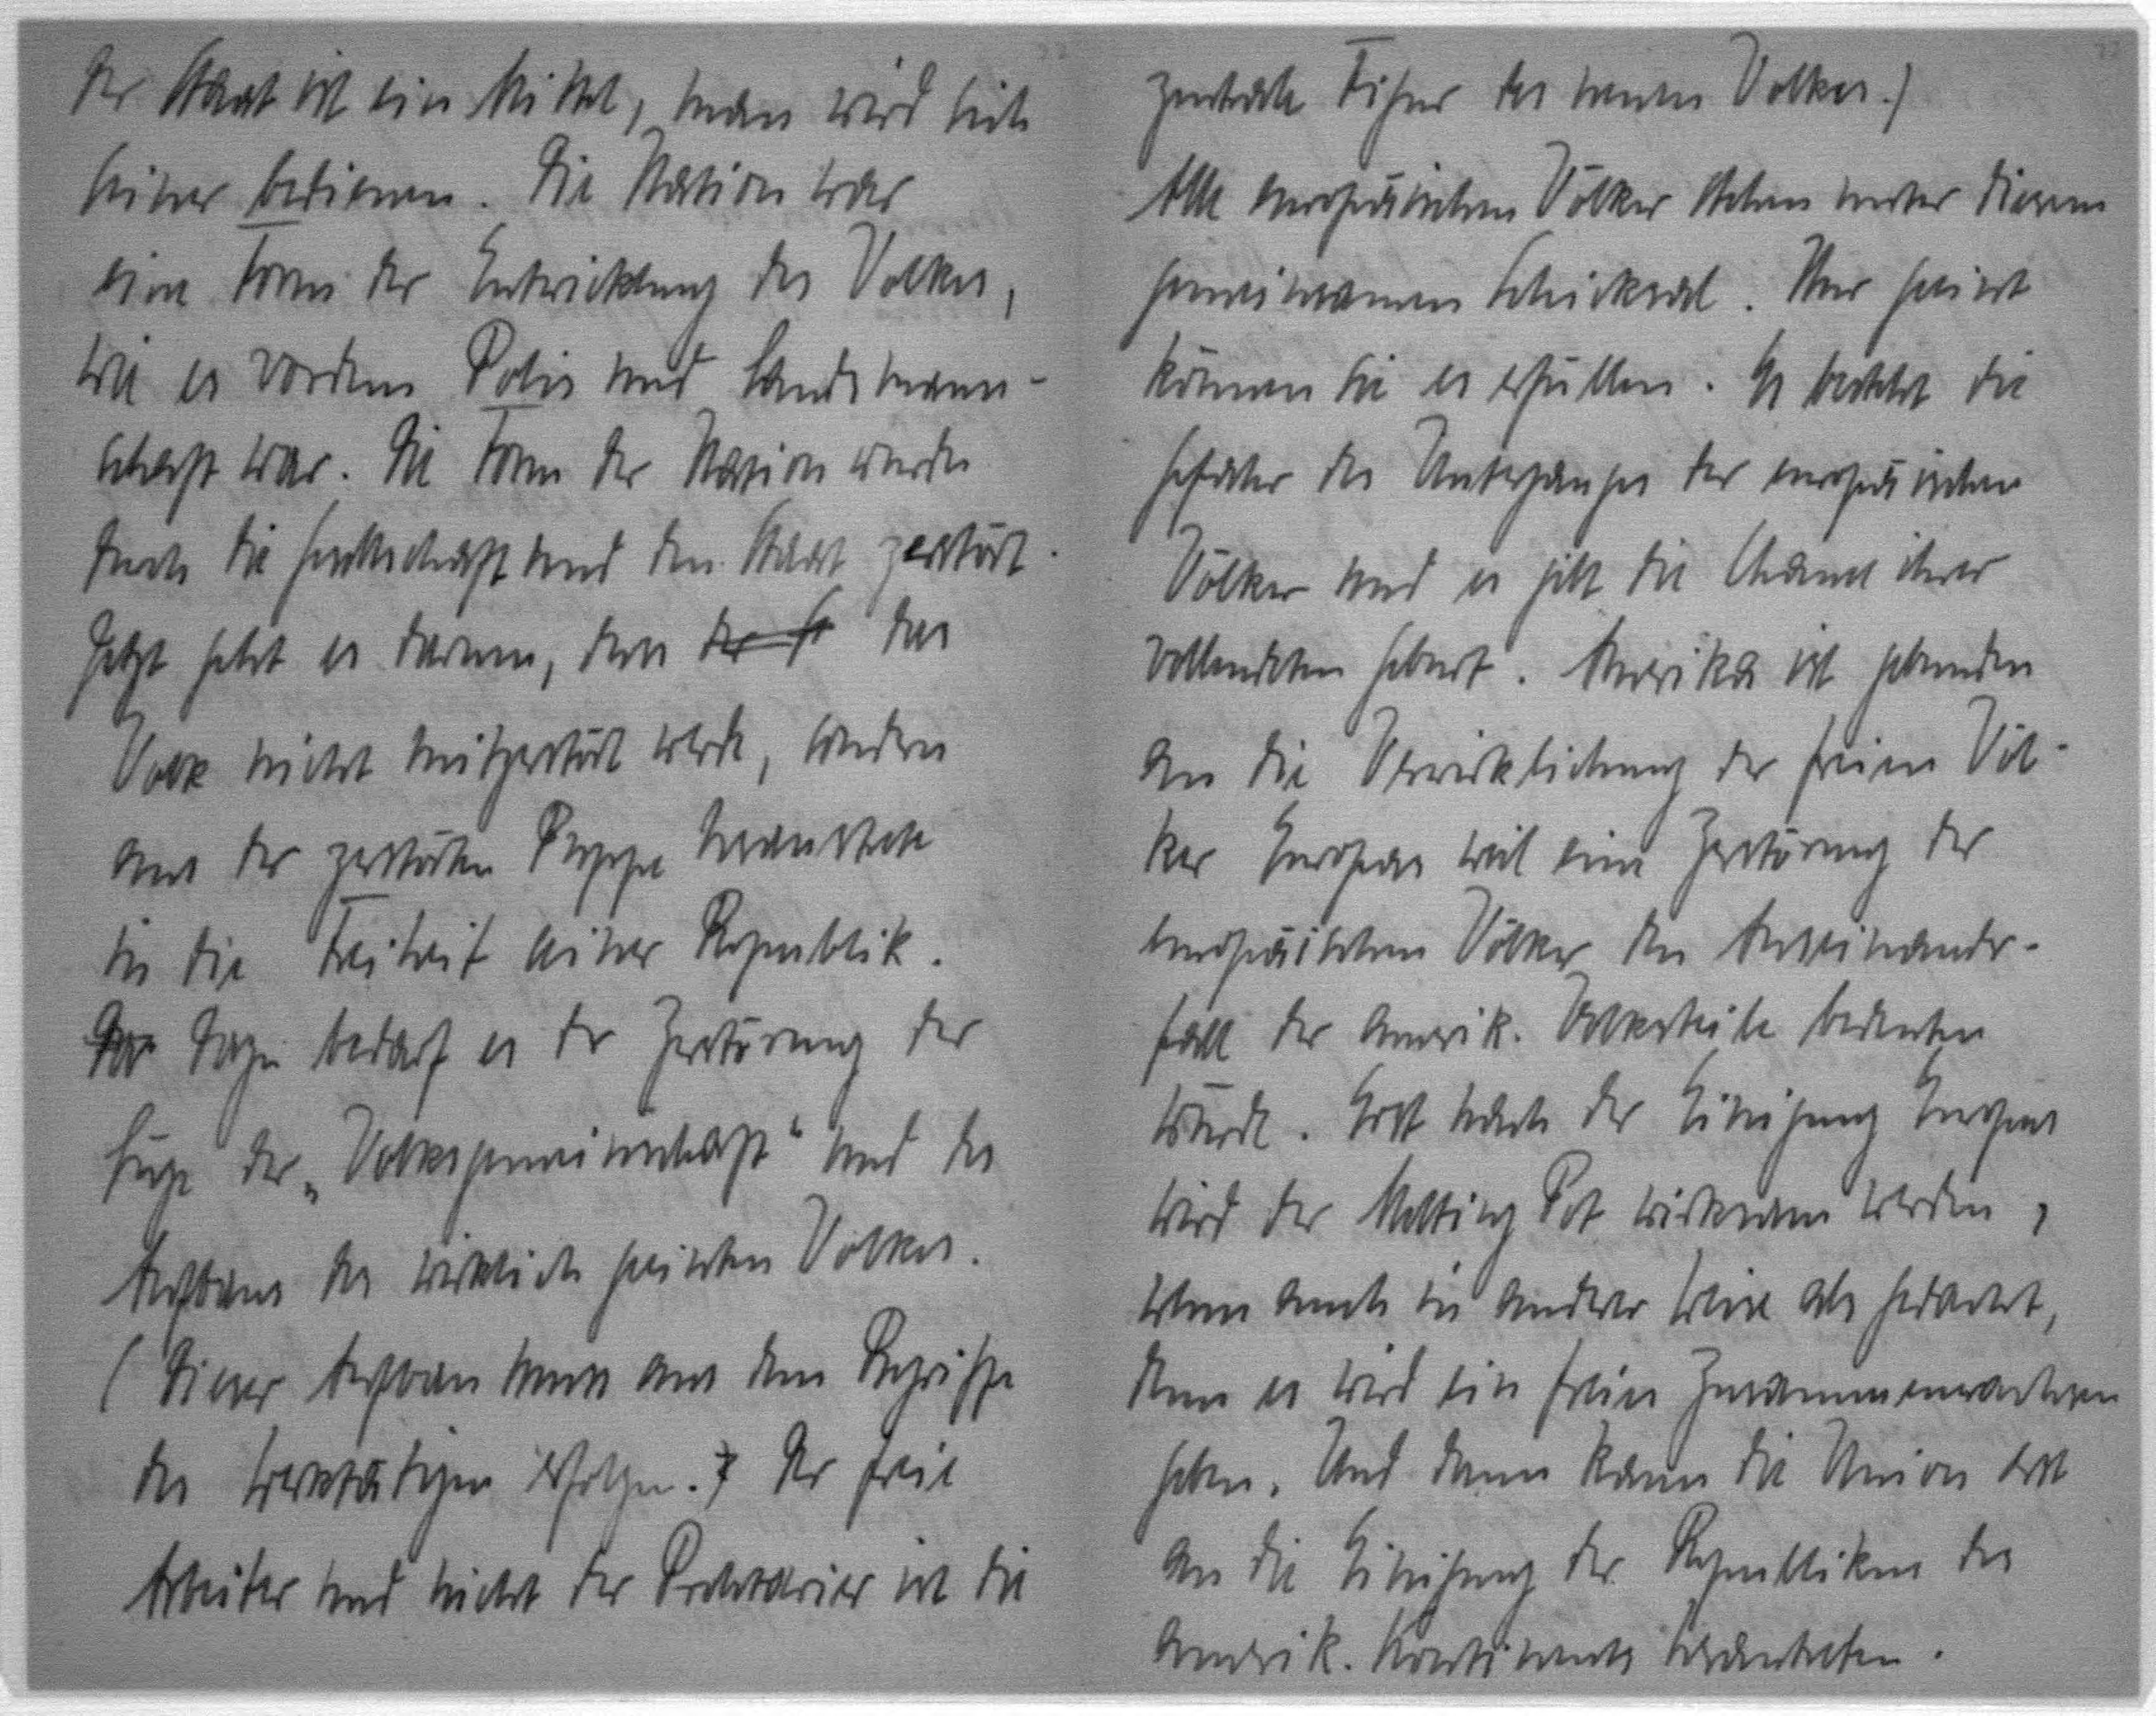 Der Staat ist ein Mittel, man wird sich
seiner bedienen. Die Nation war
eine Form der Entwicklung des Volkes,
wie es vordem Polis und Landsmann-
schaft war. Die Form der Nation wurde
durch die Gesellschaft und den Staat zerstört.
Jetzt geht es darum, dass das
Volk nicht mitzerstört werde, sondern
aus der zerstörten Puppe
in die Freiheit seiner Republik.
Dazu bedarf es der Zerstörung der
Lüge der „Volksgemeinschaft" und des
Aufbaus des wirklich geeinten Volkes.
(Dieser Aufbau muss aus dem Begriffe
des Werktätigen erfolgen. Der freie
Arbeiter und nicht der Proletarier ist die
zentrale Figur des neuen Volkes.)
Alle europäischen Völker stehen unter diesem
gemeinsamen Schicksal. Nur geeint
können sie es erfüllen. Es besteht die
Gefahr des Unterganges der europäischen
Völker und es gibt die Chance ihrer
vollendeten Geburt. Amerika ist gebunden
an die Verwirklichung der freien Völ-
ker Europas weil eine Zerstörung der
europäischen Völker den Auseinander-
fall der amerik. Volksteile bedeuten
würde. Erst nach der Einigung Europas
wird der Melting Pot wirksam werden,
wenn auch in anderer Weise als gedacht,
denn es wird ein freies Zusammenwachsen
geben. Und dann kann die Union erst
an die Einigung der Republiken des
amerik. Kontinents herantreten.